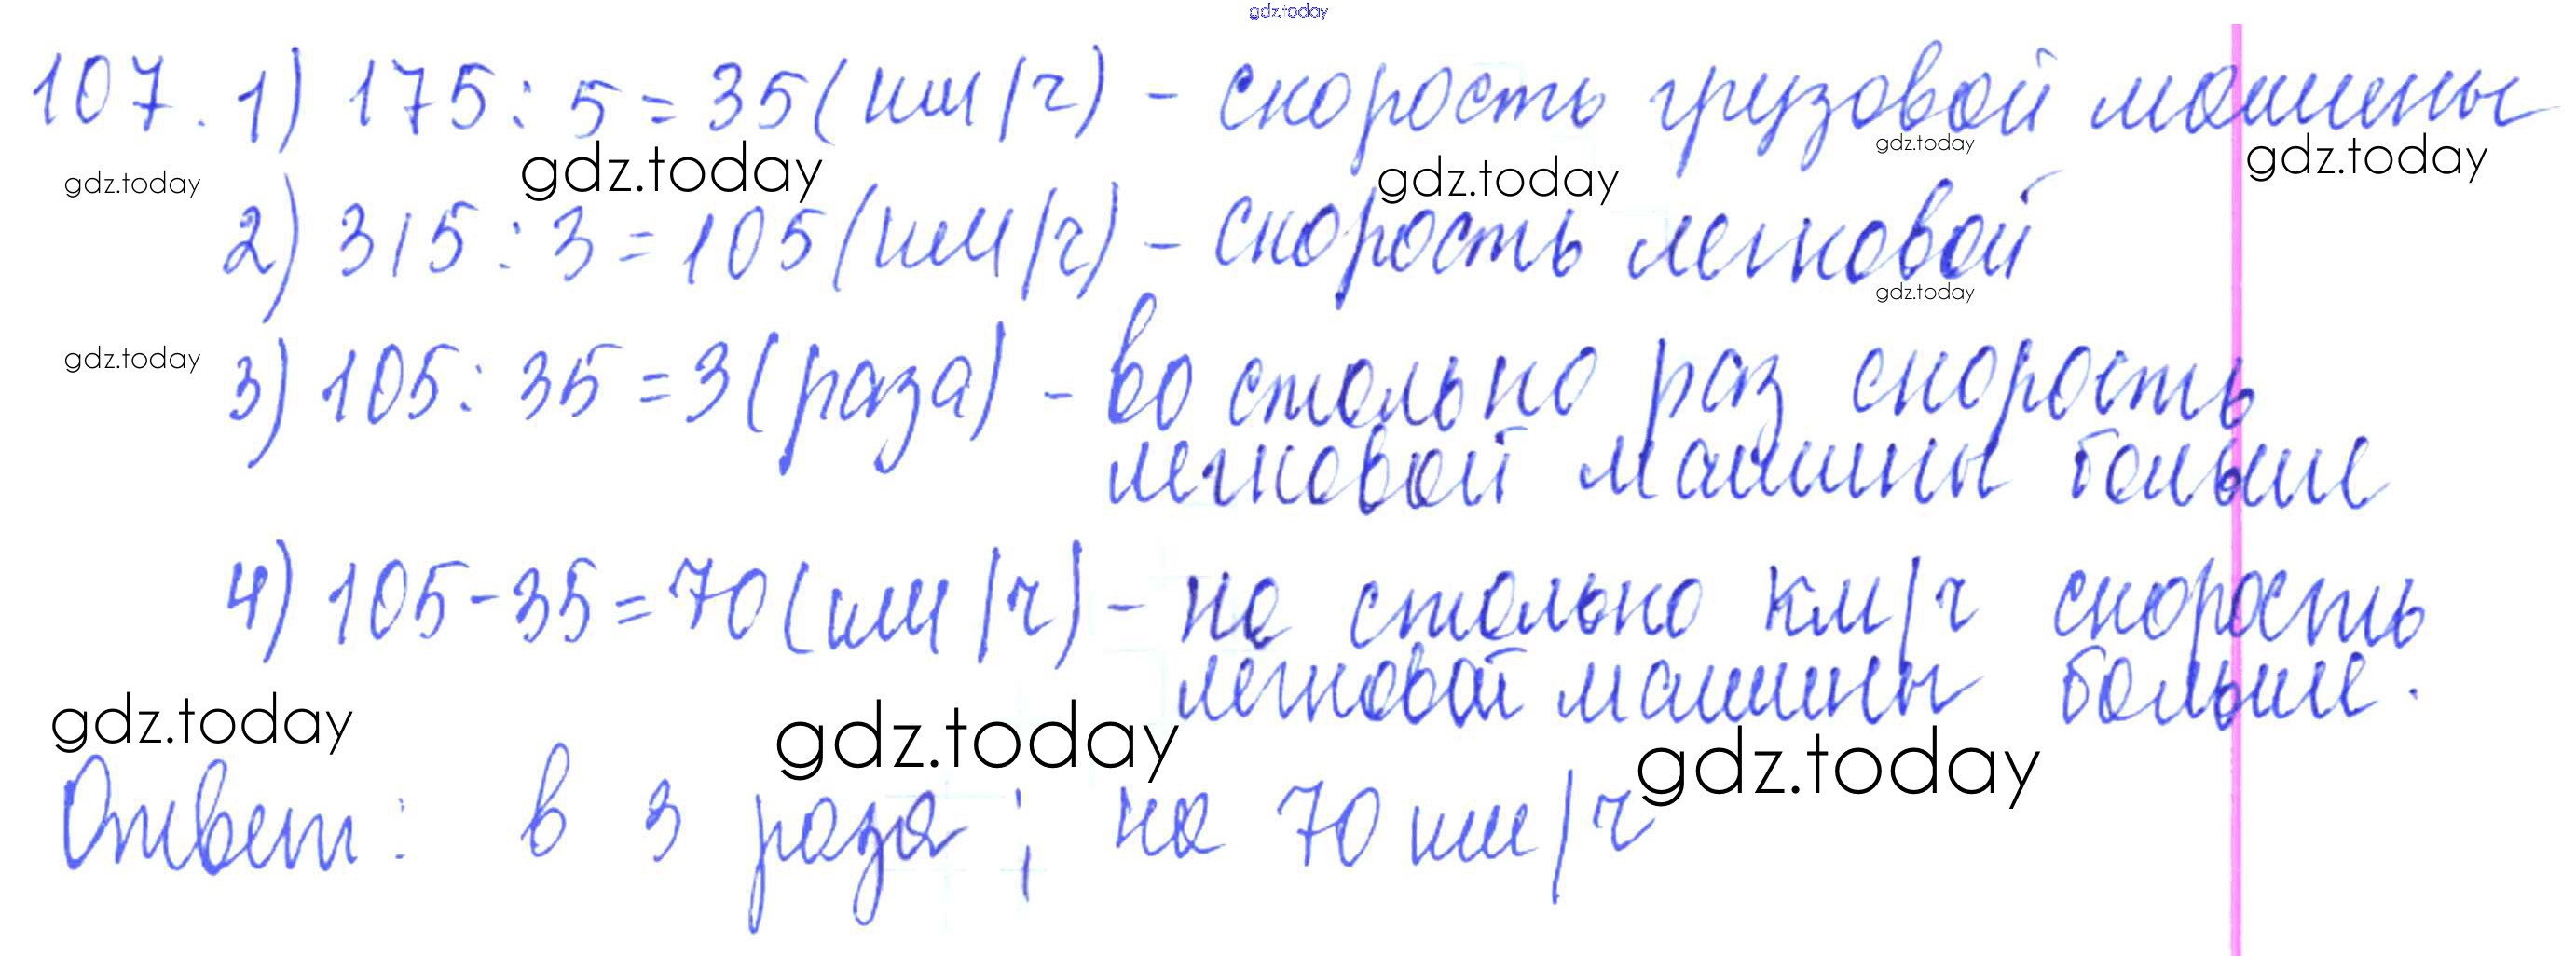 gdz.today
107. 1) 175 : 5 = 35 (км/ч) - скорость грузовой машины
gdz.today gdz.today gdz.today gdz.today gdz.today
2) 315 : 3 = 105 (км/ч) - скорость легковой
gdz.today
gdz.today
3) 105 : 35 = 3 (раза) - во столько раз скорость
легковой машины больше
4) 105 - 35 = 70 (км/ч) - на столько км/ч скорость
легковой машины больше.
gdz.today gdz.today gdz.today
Ответ: в 3 раза; на 70 км/ч